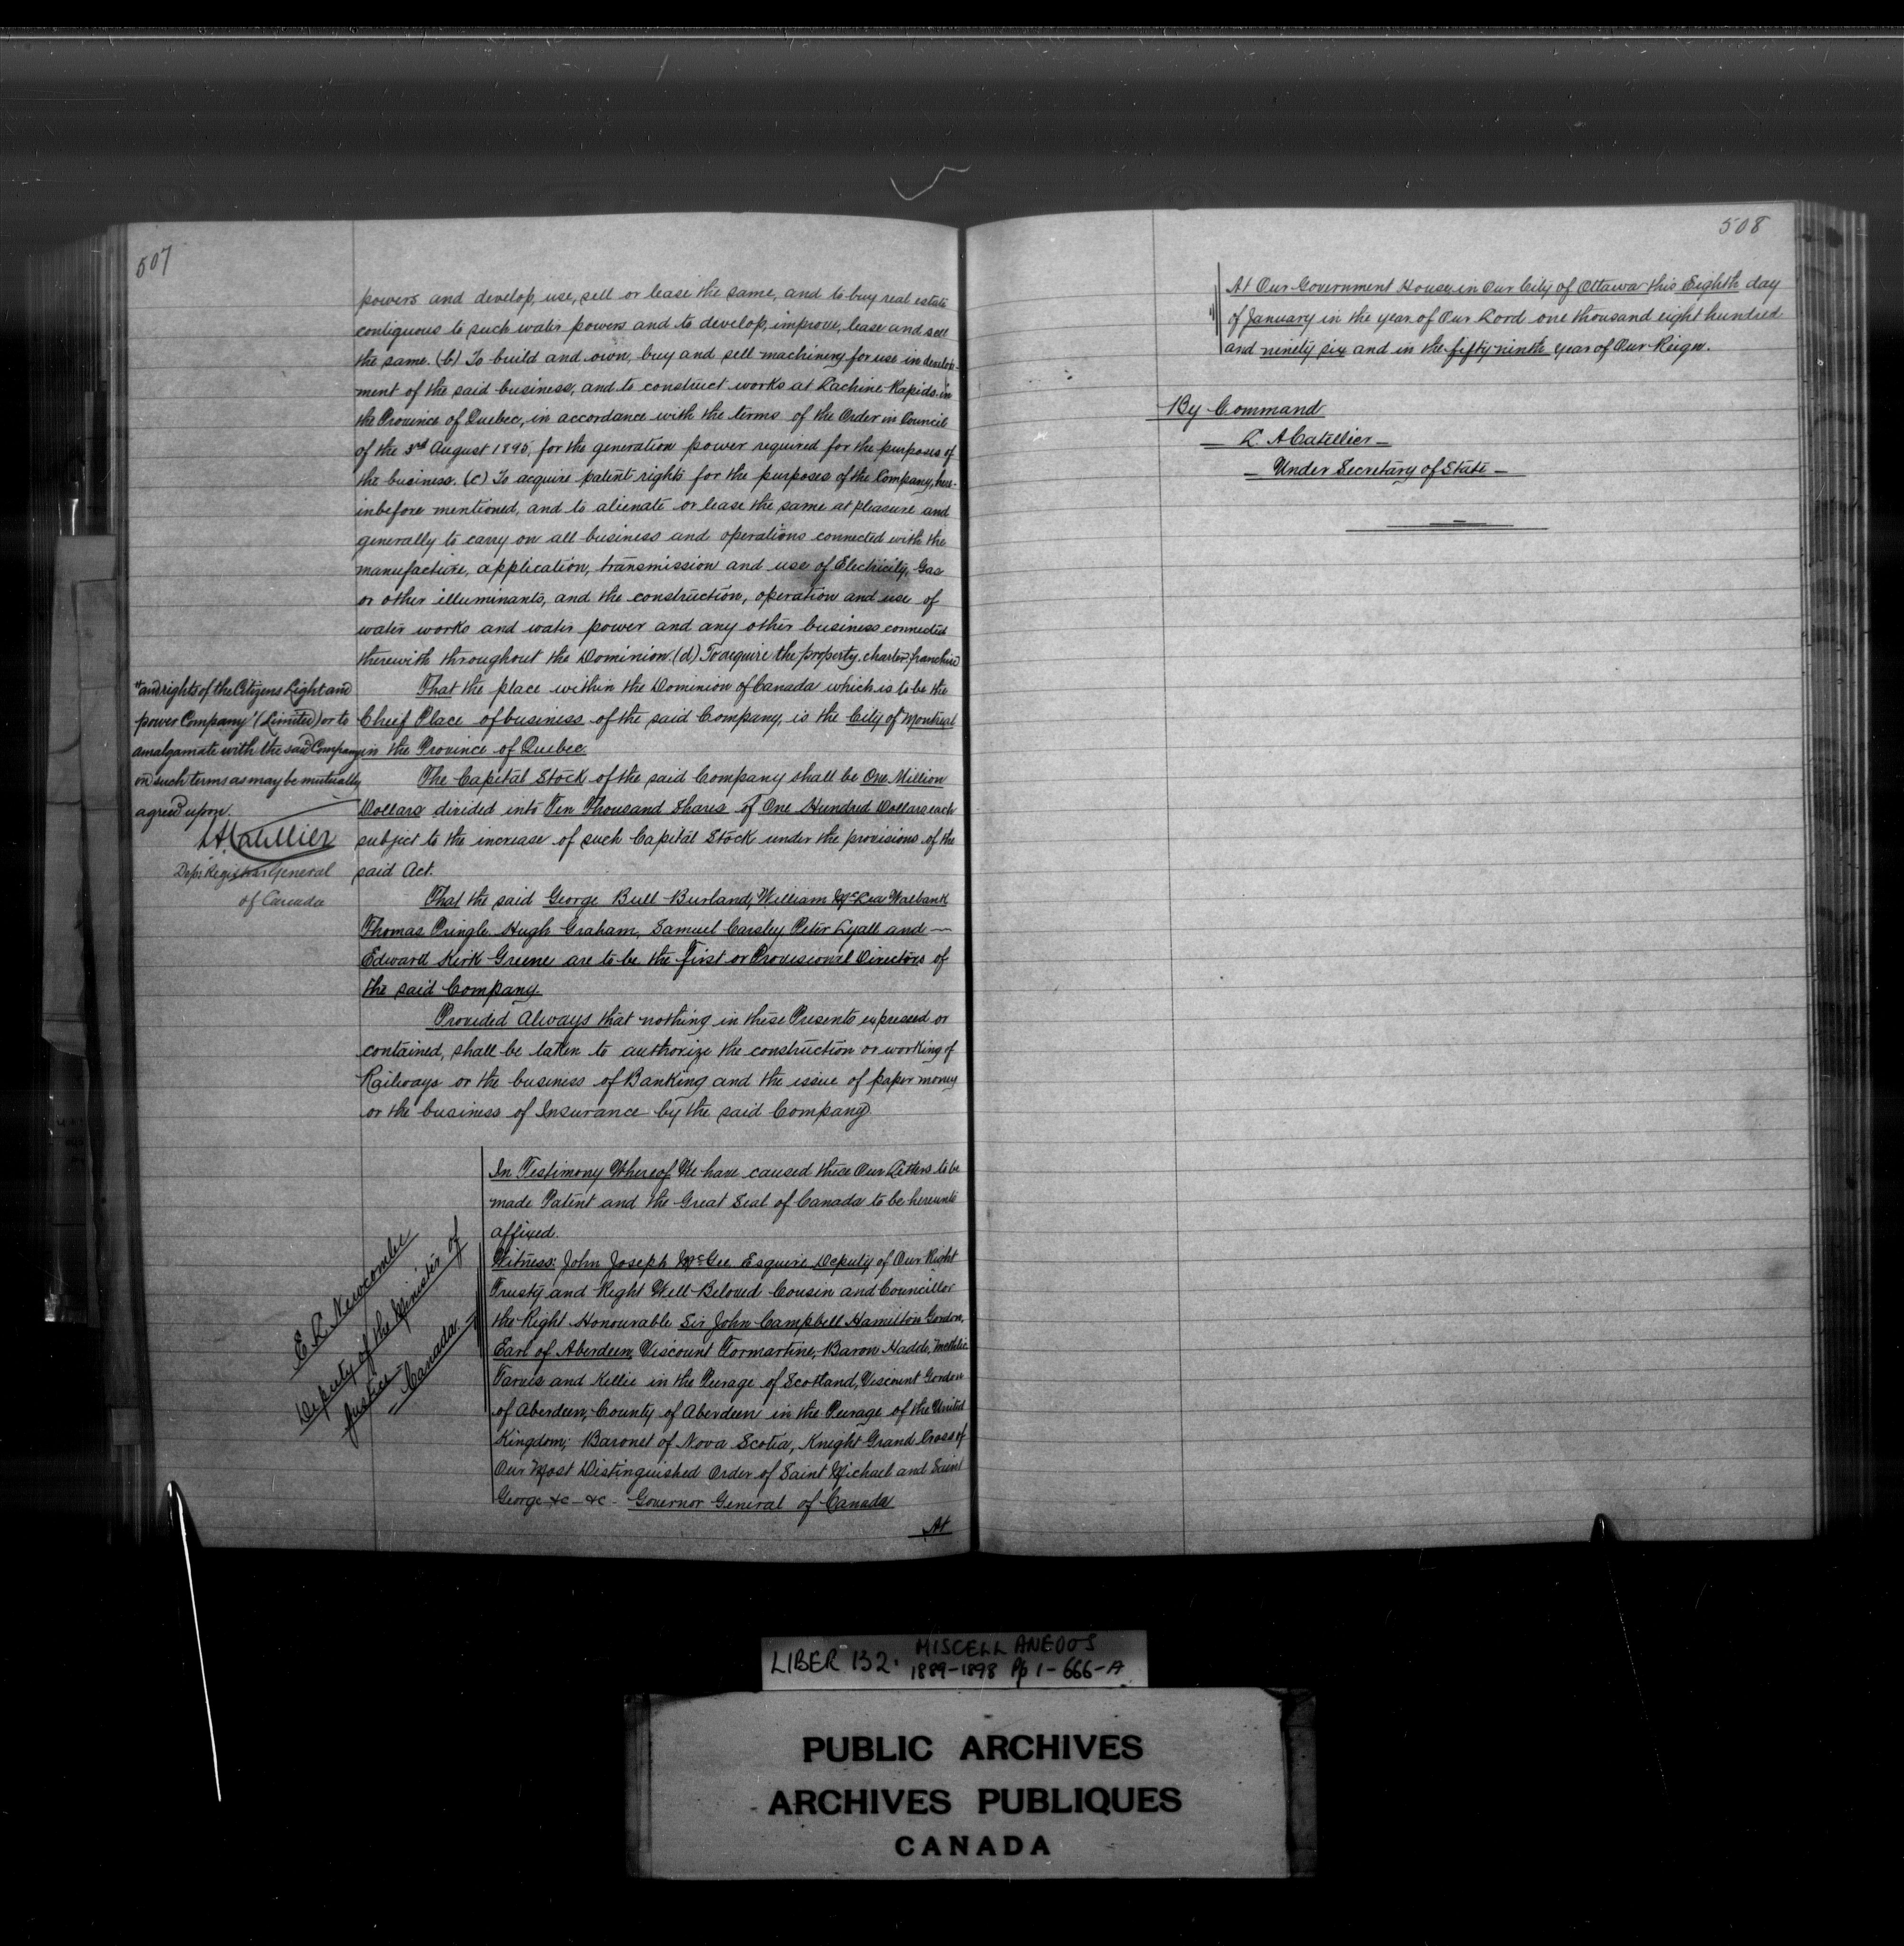 507
powers and develop, use, sell or lease the same, and to buy real estate
contiguous to such water powers and to develop, improve, lease and sell
the same. (b) To build and own, buy and sell machinery for use in develop-
ment of the said business, and to construct works at Lachine Rapids in
the Province of Quebec, in accordance with the terms of the Order in Council
of the 3rd August 1895, for the generation power required for the purposes of
the business. (c) To acquire patent rights for the purposes of the Company, here-
inbefore mentioned, and to alienate or lease the same at pleasure and
generally to carry on all business and operations connected with the
manufacture, application, transmission and use of Electricity, Gas
or other illuminants, and the construction, operation and use of
water works and water power and any other business connected
therewith throughout the Dominion. (d) To acquire the property, charter, franchise
*and rights of the Citizens Light and
power Company "(Limited) or to
amalgamate with the said Company
on such terms as may be mutually
agreed upon.
LACatellier
Depy Registrar General
of Canada
That the place within the Dominion of Canada which is to be the
Chief Place of business of the said Company, is the City of Montreal
in the Province of Quebec.
The Capital Stock of the said Company shall be One Million
Dollars divided into Ten Thousand Shares of One Hundred Dollars each
subject to the increase of such Capital Stock under the provisions of the
said Act.
That the said George Bull Burland, William McLea Walbank
Thomas Pringle, Hugh Graham, Samuel Carsley Peter Lyall and —
Edward Kirk Greene are to be the first or Provisional Directors of
the said Company.
Provided Always that nothing in these Presents expressed or
contained, shall be taken to authorize the construction or working of
Railways or the business of Banking and the issue of paper money
or the business of Insurance by the said Company
In Testimony Whereof We have caused these Our Letters to be
made Patent and the Great Seal of Canada to be hereunto
affixed.
Witness: John Joseph McGee Esquire Deputy of Our Right
Trusty and Right Well-Beloved Cousin and Councillor
the Right Honourable Sir John Campbell Hamilton Gordon,
Earl of Aberdeen; Viscount Formartine, Baron Haddo, Methlic
Tarvis and Kellie in the Peerage of Scotland, Viscount Gordon
of Aberdeen, County of Aberdeen in the Peerage of the United
Kingdom; Baronet of Nova Scotia, Knight Grand Cross of
Our Most Distinguished Order of Saint Michael and Saint
George &c - &c - Governor General of Canada
At
E. L. Newcombe
Deputy of the Minister of
Justice
Canada
508
At Our Government House in Our City of Ottawa this Eighth day
of January in the year of Our Lord one thousand eight hundred
and ninety six and in the fifty ninth year of Our Reign.
By Command
L. A Catellier —
— Under Secretary of State —
LIBER 132. MISCELLANEOUS
1889-1898 Pp 1-666-A
PUBLIC ARCHIVES
ARCHIVES PUBLIQUES
CANADA